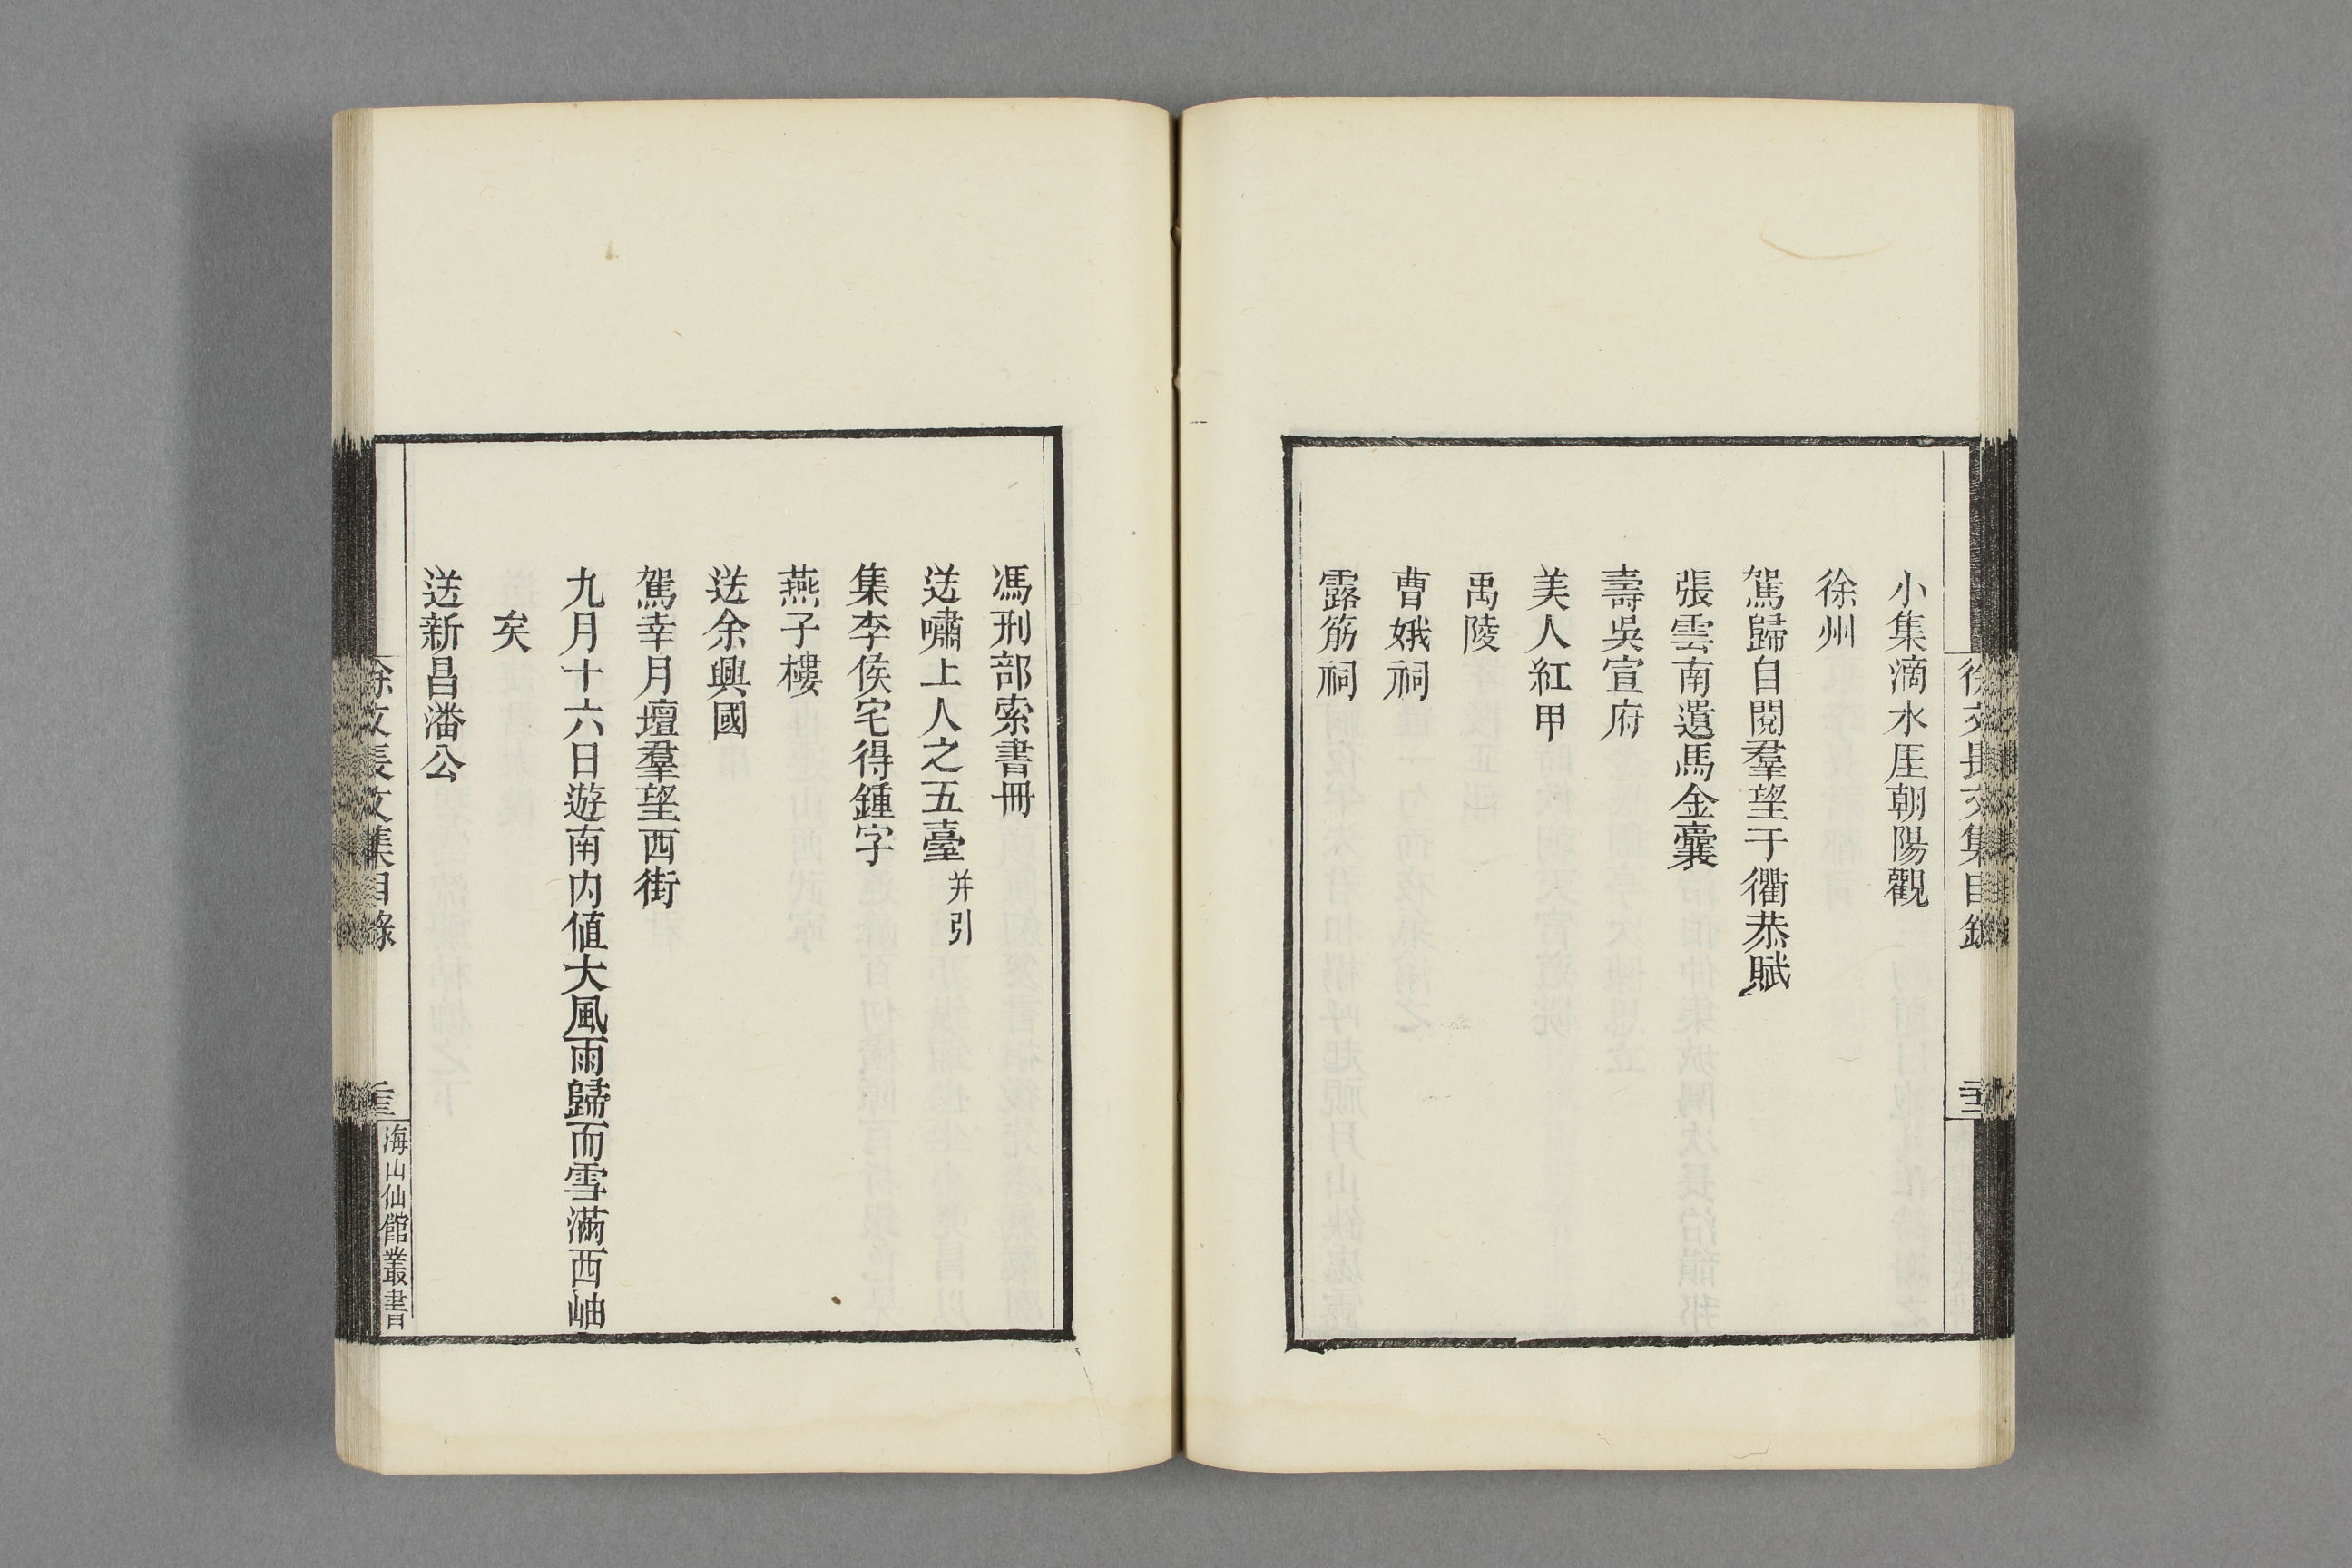 徐文長文集目錄
小集滴水厓朝陽觀
徐州
駕歸自閱羣望于衢恭賦
張雲南遺馬金囊
壽吳宣府
美人紅甲
禹陵
曹娥祠
露筋祠
馮刑部索書冊
送嘯上人之五臺并引
集李侯宅得鍾字
燕子樓
送余興國
駕幸月壇羣望西街
九月十六日遊南内值大風雨歸而雪滿西岫
矣
送新昌潘公
徐文長文集目錄
海山仙館叢書